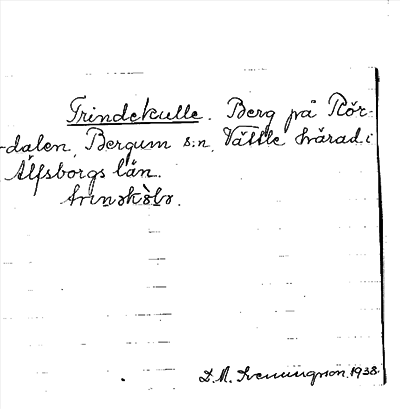 Trindekulle. Berg på Rör-
-dalen, Bergum s:n, Vättle härad i
Älfsborgs län.
D. A. Svenungsson 1938.